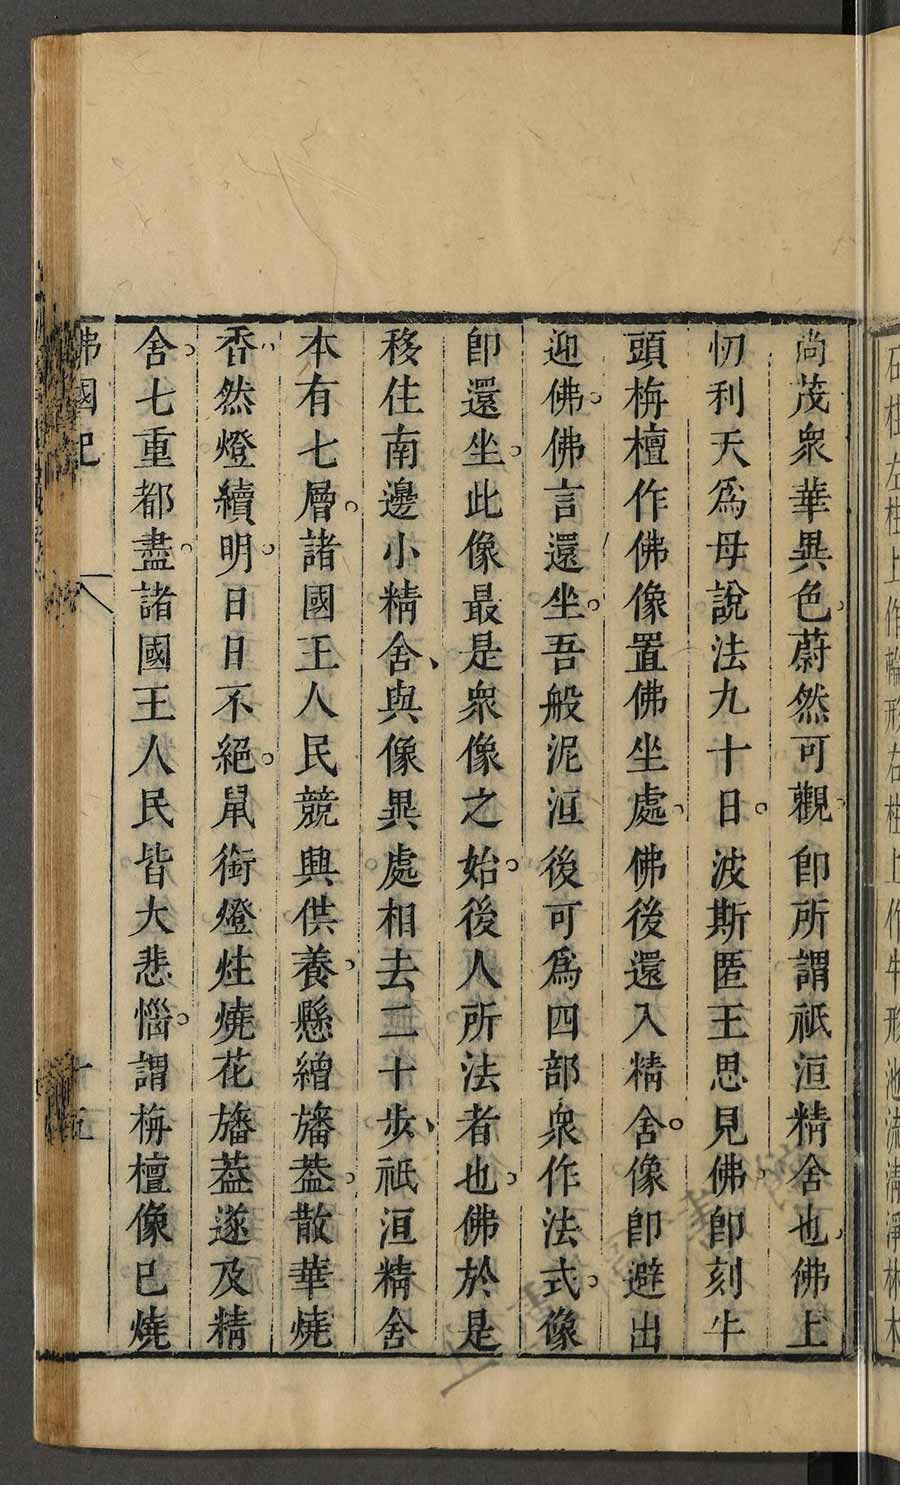 石柱左柱上作輪形右柱上作牛形池流清淨林木
尚茂衆華異色蔚然可觀卽所謂祇洹精舍也佛上
忉利天爲母說法九十日波斯匿王思見佛卽刻牛
頭栴檀作佛像置佛坐處佛後還入精舍像卽避出
迎佛佛言還坐吾般泥洹後可爲四部衆作法式像
卽還坐此像最是衆像之始後人所法者也佛於是
移住南邊小精舍與像異處相去二十步祇洹精舍
本有七層諸國王人民競興供養懸繒旛葢散華燒
香然燈續明日日不絕鼠銜燈炷燒花旛葢遂及精
舍七重都盡諸國王人民皆大悲惱謂栴檀像已燒
佛國記 十五